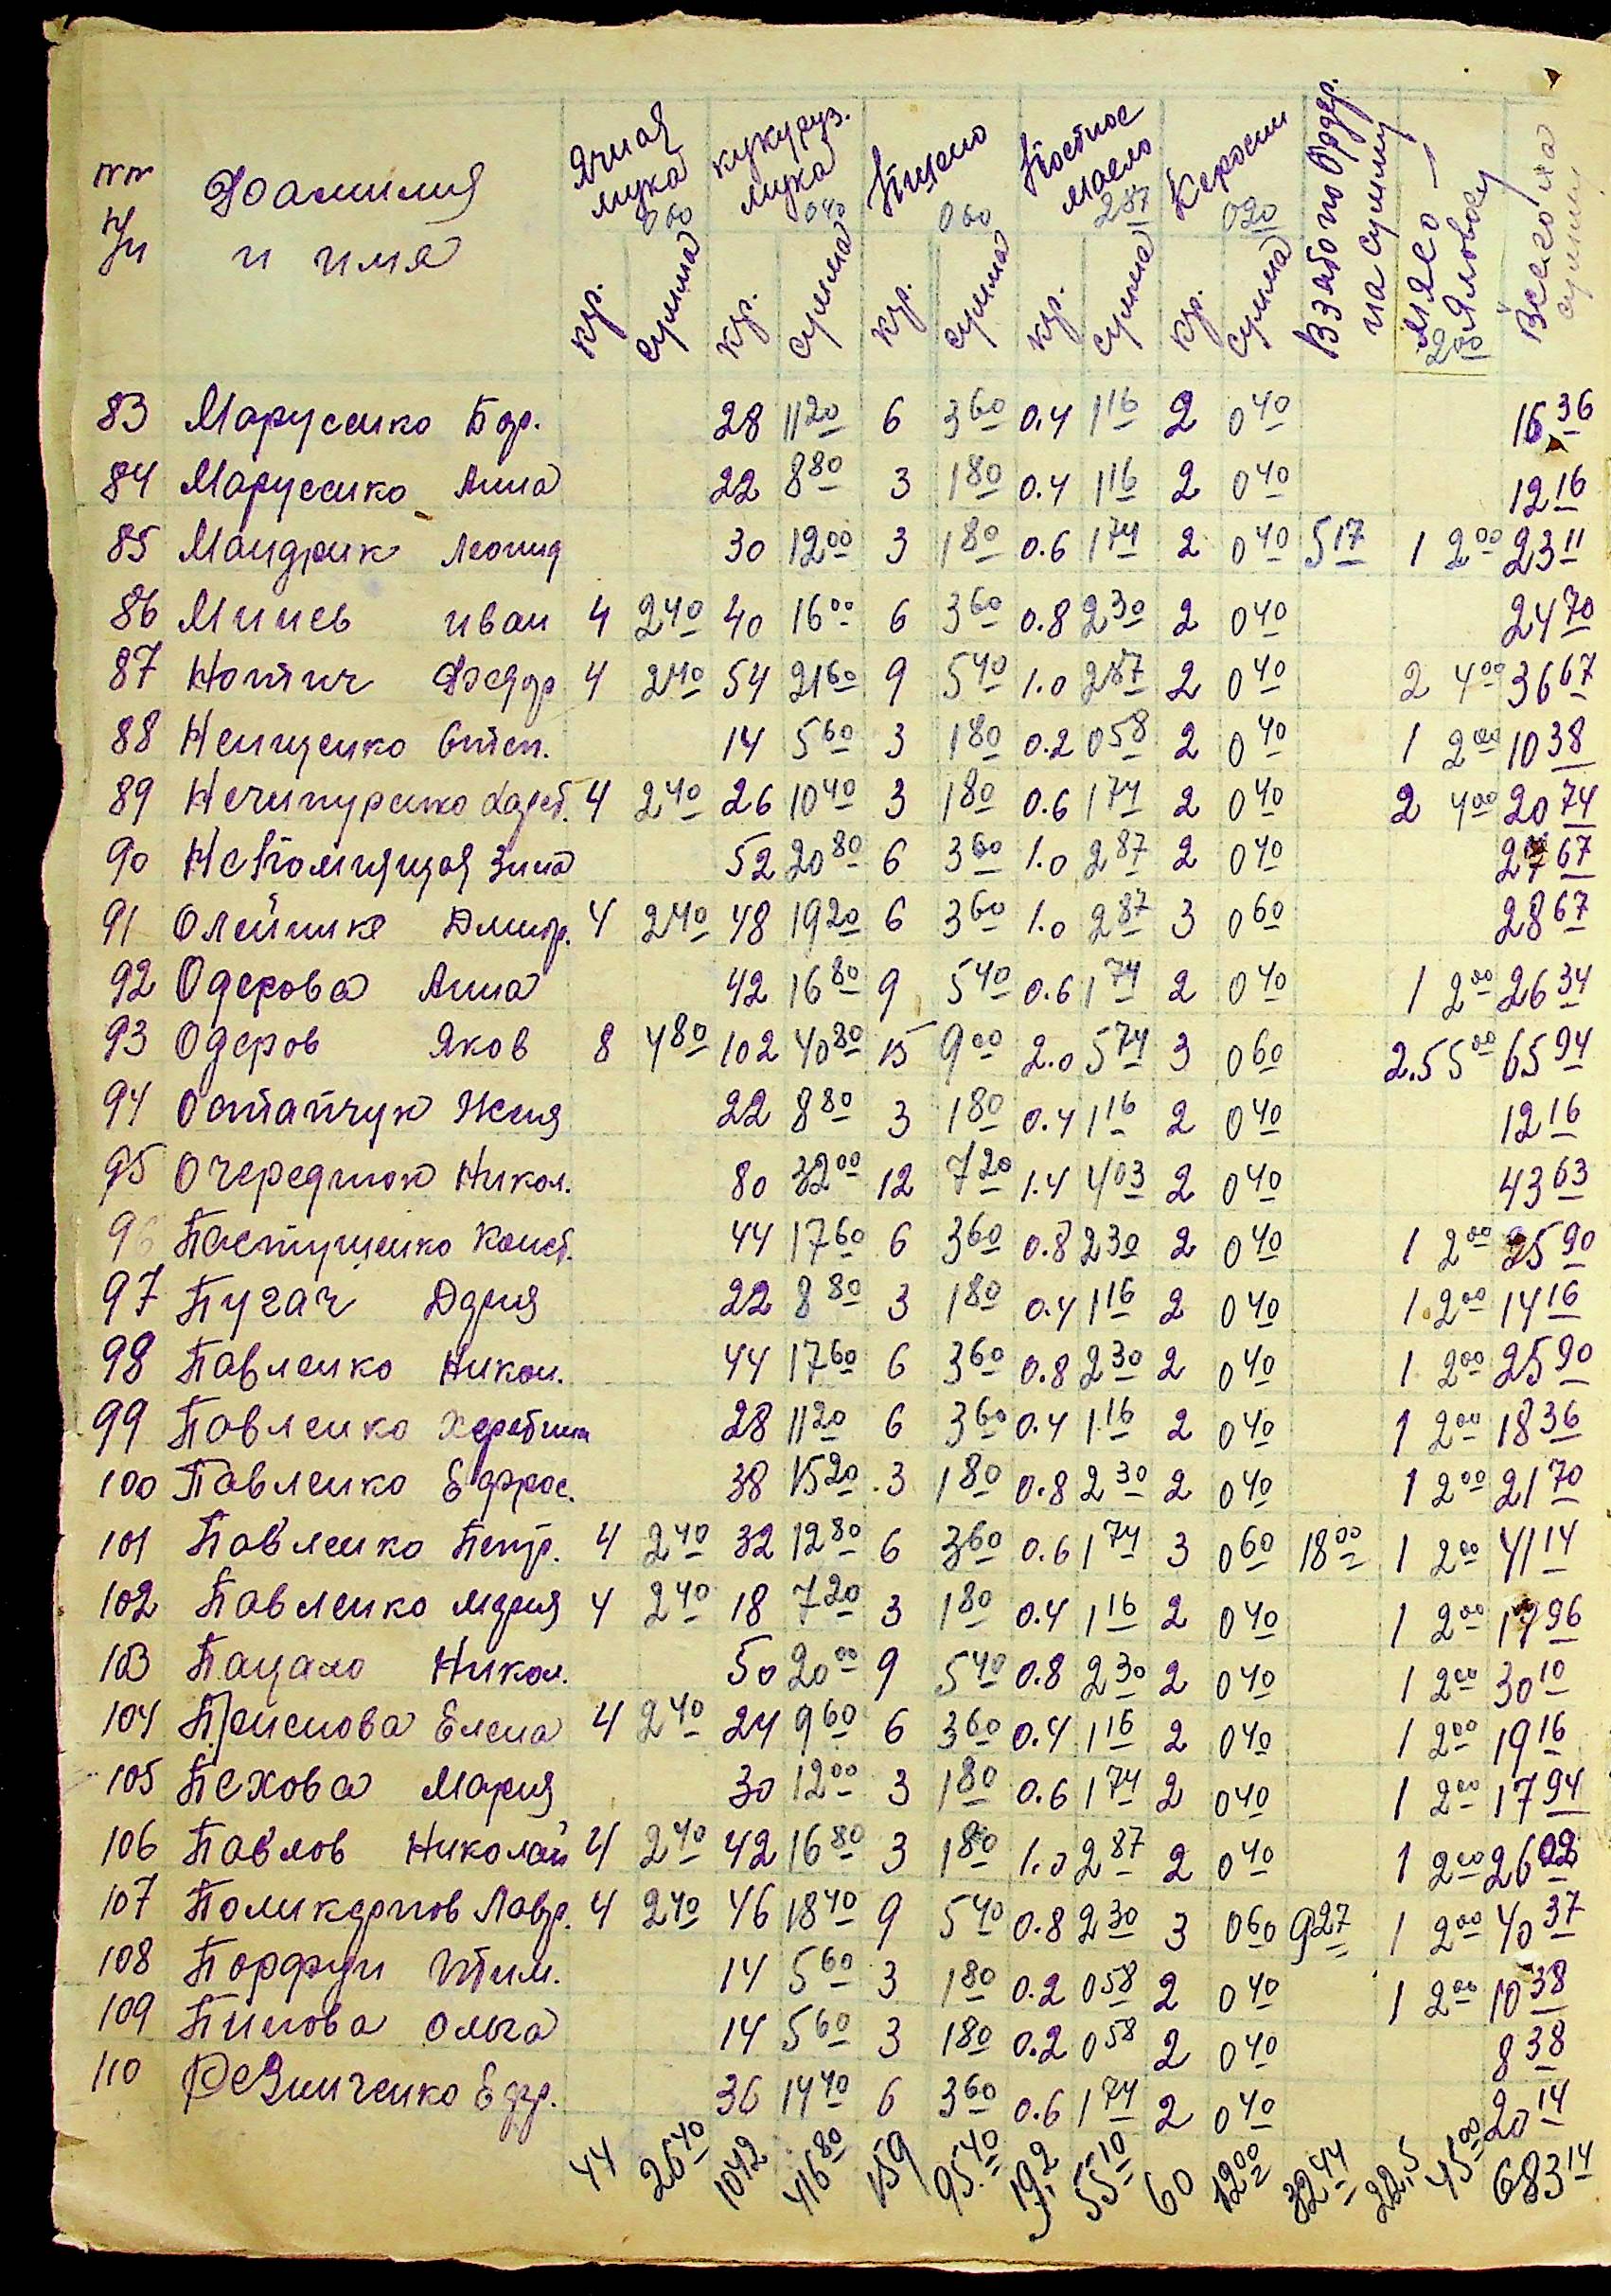 №№ п/п Фамилия и имя Ячная мука 0 60 кукуруз. мука 0 40 Пшено 0 60 Постное масло 2 87 Керосин 0 20 Взято по Ордер. на сумму Мясо – Яловое 2 00 Всего на сумму
кгр. сумма кгр. сумма кгр. сумма кгр. сумма кгр. сумма
83 Марусенко Гдр. 28 11 20 6 3 60 0.4 1 16 2 0 40 16 36
84 Марусенко Анна 22 8 80 3 1 80 0.4 1 16 2 0 40 12 16
85 Мандрик Леонид 30 12 00 3 1 80 0.6 1 74 2 0 40 5 17 1 2 00 23 11
86 Минев иван 4 2 40 40 16 00 6 3 60 0.8 2 30 2 0 40 24 70
87 Нотич Федор 4 2 40 54 21 60 9 5 40 1.0 2 87 2 0 40 2 4 00 36 67
88 Ненщенко Степ. 14 5 60 3 1 80 0.2 0 58 2 0 40 1 2 00 10 38
89 Нечипуренко 4 2 40 26 10 40 3 1 80 0.6 1 74 2 0 40 2 4 00 20 74
90 Непомнящая Зина 52 20 80 6 3 60 1.0 2 87 2 0 40 27 67
91 Олейник Дмитр. 4 2 40 48 19 20 6 3 60 1.0 2 87 3 0 60 28 67
92 Одерова Анна 42 16 80 9 5 40 0.6 1 74 2 0 40 1 2 00 26 34
93 Одеров Яков 8 4 80 102 40 80 15 9 00 2.0 5 74 3 0 60 2.5 5 00 65 94
94 Остапчук Женя 22 8 80 3 1 80 0.4 1 16 2 0 40 12 16
95 Очереднюк Никол. 80 32 00 12 7 20 1.4 4 03 2 0 40 43 63
96 Пастушенко Конст. 44 17 60 6 3 60 0.8 2 30 2 0 40 1 2 00 25 90
97 Пугач Дария 22 8 80 3 1 80 0.4 1 16 2 0 40 1 2 00 14 16
98 Павленко Никол. 44 17 60 6 3 60 0.8 2 30 2 0 40 1 2 00 25 90
99 Павленко 28 11 20 6 3 60 0.4 1 16 2 0 40 1 2 00 18 36
100 Павленко Ефрос. 38 15 20 3 1 80 0.8 2 30 2 0 40 1 2 00 21 70
101 Павленко Петр. 4 2 40 32 12 80 6 3 60 0.6 1 74 3 0 60 18 00 1 2 00 41 14
102 Павленко Мария 4 2 40 18 7 20 3 1 80 0.4 1 16 2 0 40 1 2 00 14 96
103 Пацало Никол. 50 20 00 9 5 40 0.8 2 30 2 0 40 1 2 00 30 10
104 Елена 4 2 40 24 9 60 6 3 60 0.4 1 16 2 0 40 1 2 00 19 16
105 Пехова Мария 30 12 00 3 1 80 0.6 1 74 2 0 40 1 2 00 17 94
106 Павлов Николай 4 2 40 42 16 80 3 1 80 1.0 2 87 2 0 40 1 2 00 26 02
107 Поликарпов Лавр. 4 2 40 46 18 40 9 5 40 0.8 2 30 3 0 60 9 27 1 2 00 40 37
108 Порфун 14 5 60 3 1 80 0.2 0 58 2 0 40 1 2 00 10 38
109 Пинова Ольга 14 5 60 3 1 80 0.2 0 58 2 0 40 8 38
110 Резниченко Егр. 36 14 40 6 3 60 0.6 1 74 2 0 40 20 14
44 26 40 1042 416 80 159 95 40 19,2 55 10 60 12 00 32 44 22,5 45 00 683 14